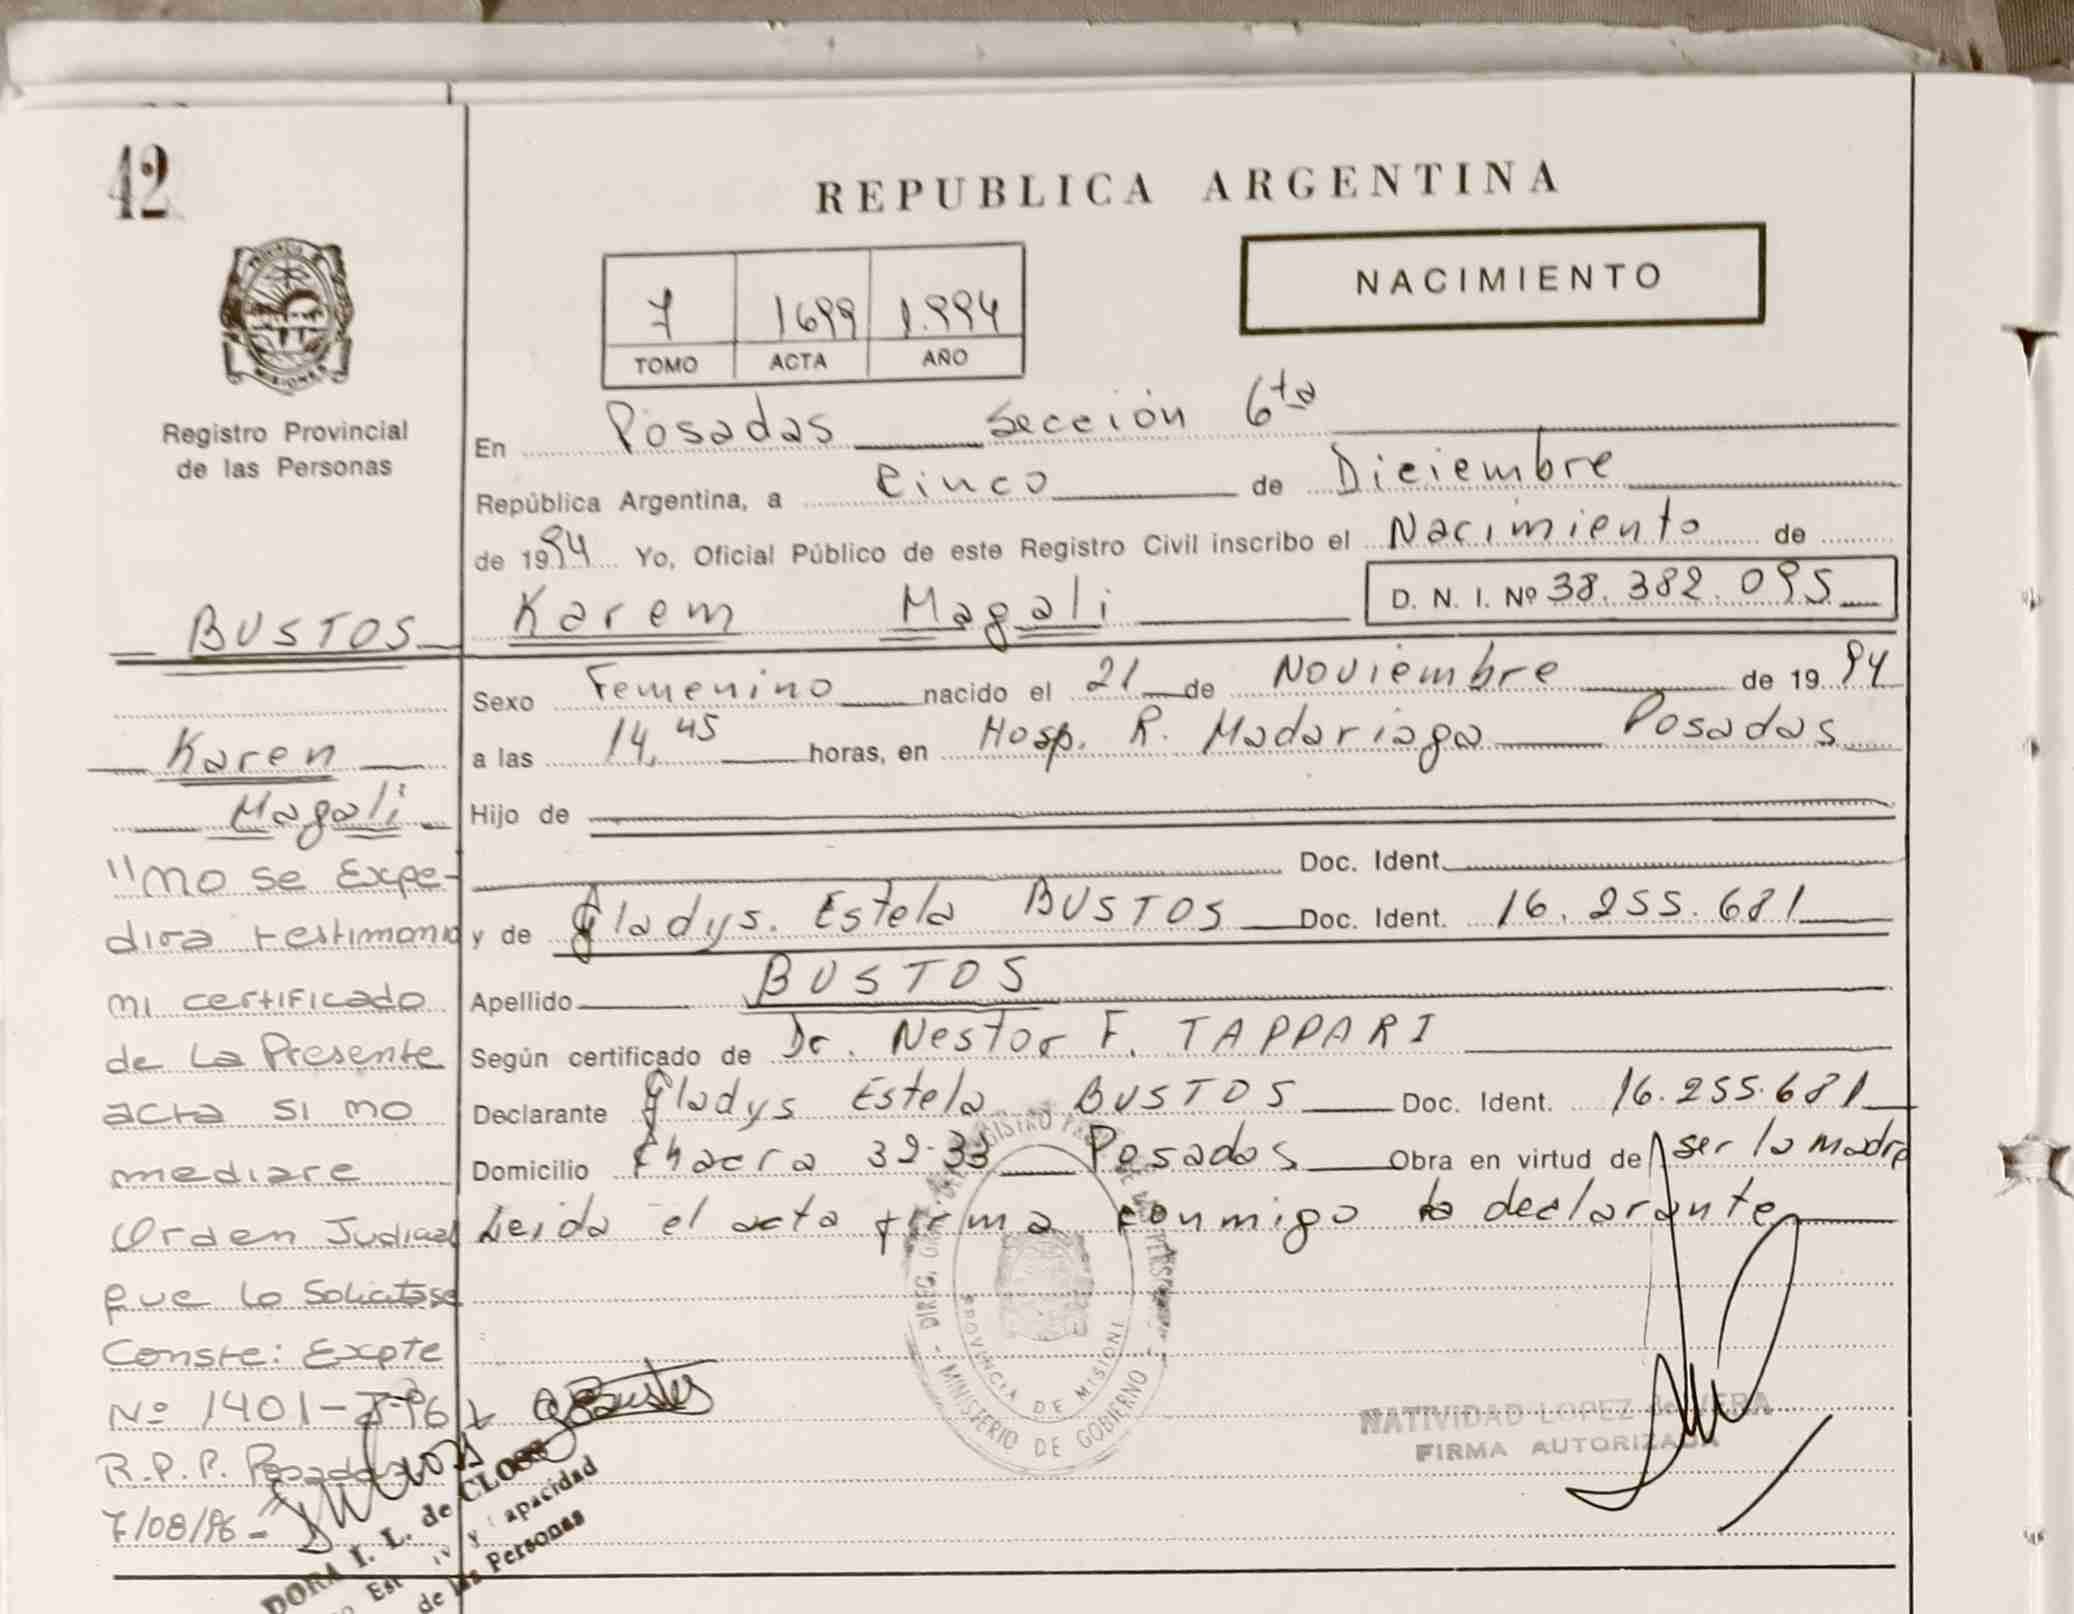 42
REPUBLICA ARGENTINA
NACIMIENTO
7 1699 1.994
TOMO ACTA AÑO
PROVINCIA DE
MISIONES
Registro Provincial
de las Personas
En Posadas Sección 6ta
República Argentina, a Cinco de Diciembre
de 1994 Yo, Oficial Público de este Registro Civil inscribo el Nacimiento de
Karem Magali D. N. I. Nº 38.382.095
Sexo Femenino nacido el 21 de Noviembre de 1994
a las 14,45 horas, en Hosp. R. Madariaga Posadas
Hijo de
Doc. Ident.
y de Gladys. Estela BUSTOS Doc. Ident. 16.255.681
Apellido BUSTOS
Según certificado de Dr. Nestor F. TAPPARI
Declarante Gladys Estela BUSTOS Doc. Ident. 16.255.681
Domicilio Chacra 32-33 Posadas Obra en virtud de ser la madre
Leida el acta firma conmigo la declarante
BUSTOS
Karen
Magali
"no se Expe-
dira testimonio
ni certificado
de La Presente
acta si no
mediare
Orden Judicial
que lo Solicitase
Conste: Expte
Nº 1401-
R.P.P. Posadas
7/08/96-
G Bustos
DORA I. L. de CLOSS
y Capacidad
de las Personas
REGISTRO
PROVINCIA DE MISIONES
MINISTERIO DE GOBIERNO
NATIVIDAD LOPEZ de VERA
FIRMA AUTORIZADA